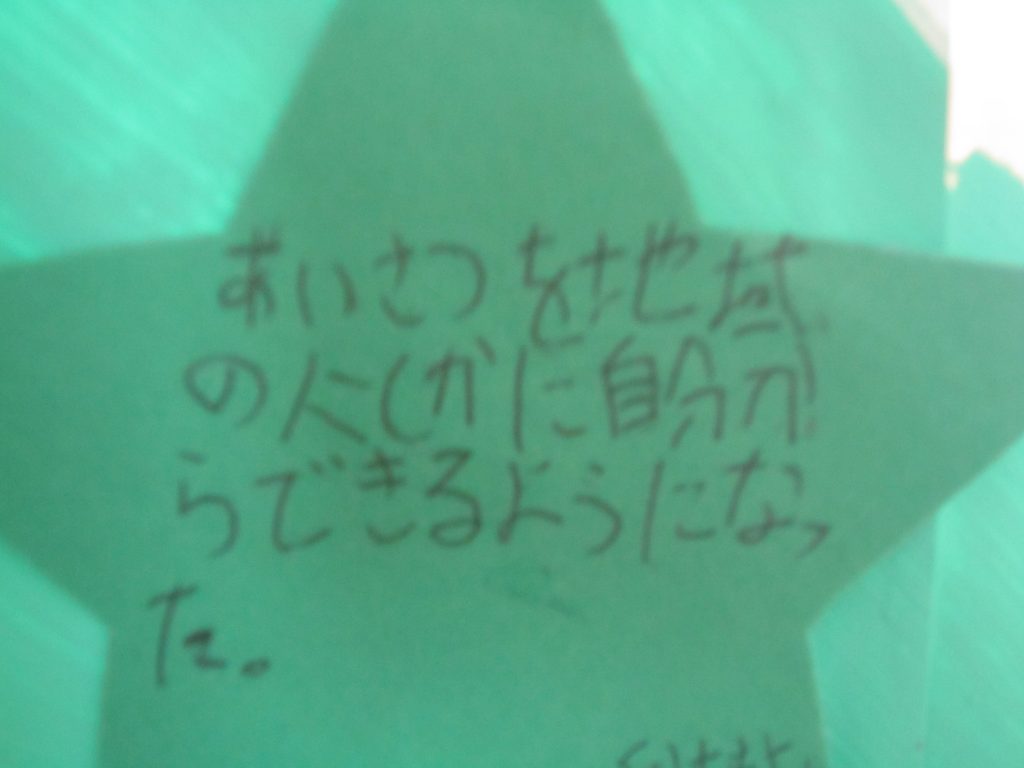 あいさつを地域
の人しかに自分か
らできるようになっ
た。